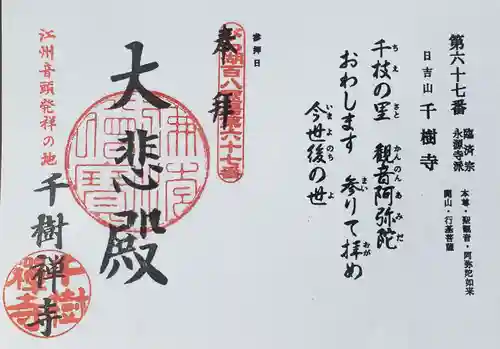 第六十七番
臨済宗
永源寺派
本尊・聖観音・阿弥陀如来
開山・行基菩薩
日吉山 千樹寺
千枝の里 観音阿弥陀
おわします 参りて拝め
今世後の世
参拝日
奉拝
びわ湖百八霊場第六十七番
大悲殿
江州音頭発祥の地
千樹禅寺